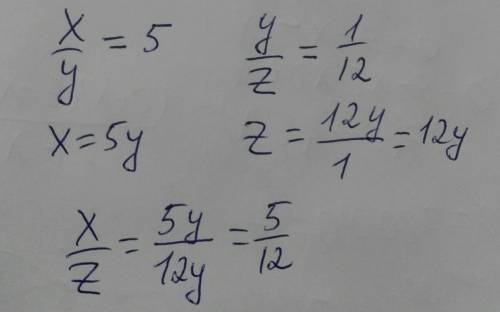 x/y = 5    y/z = 1/12
x = 5y    z = 12y/1 = 12y
x/z = 5y/12y = 5/12